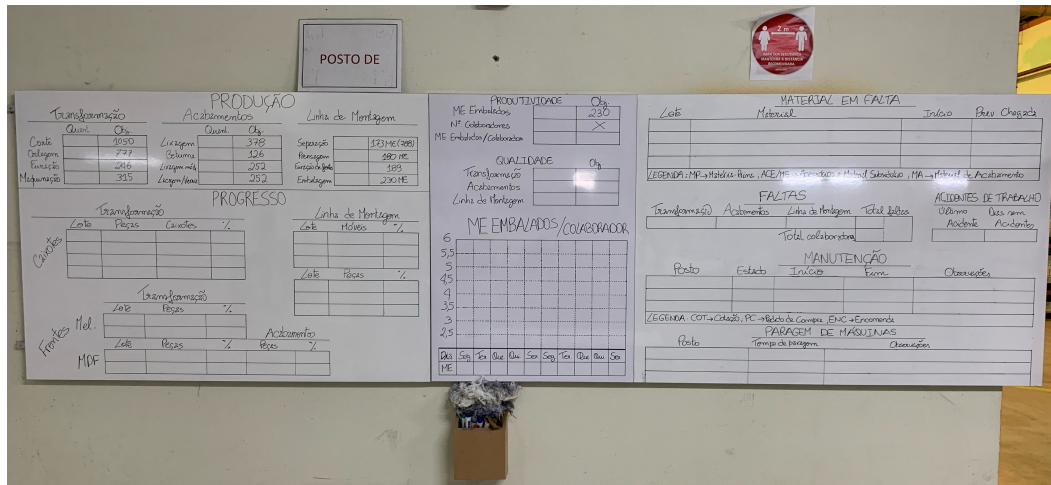 POSTO DE
2 m
PRODUÇÃO
Transformação Acabamentos Linha de Montagem
Quant. Obj.
Corte 1050
Orlagem 777
Furação 246
Maquinação 315
Quant. Obj.
Lixagem 378
Coluna 126
Lixagem 252
252
Separação 173 ME (788)
Prensagem 180 ME
189
Embalagem 230 ME
PROGRESSO
Transformação
Lote Peças Caixotes %
Caixotes
Linha de Montagem
Lote Móveis %
Lote Peças %
Transformação
Lote Peças %
Frontes Mel.
Acabamento
Lote Peças % Peças %
MDF
PRODUTIVIDADE Obj.
ME Embalados 230
Nº Colaboradores X
ME Embalados/Colaborador
QUALIDADE Obj.
Transformação
Acabamentos
Linha de Montagem
ME EMBALADOS/COLABORADOR
6
5,5
5
4,5
4
3,5
3
2,5
Dias Seg Ter Qua Qui Sex Seg Ter Qua Qui Sex
ME
MATERIAL EM FALTA
Lote Material Início Prev Chegada
LEGENDA: MP→Matéria-Prima, ACE/ME→ Material Subsidiário, MA→Material de Acabamento
FALTAS
Transformação Acabamentos Linha de Montagem Total faltas
Total colaboradores
ACIDENTES DE TRABALHO
Último Acidente
Dias sem Acidentes
MANUTENÇÃO
Posto Estado Início Fim Observações
LEGENDA: COT→Cotação, PC→Pedido de Compra, ENC→Encomenda
PARAGEM DE MÁQUINAS
Posto Tempo de paragem Observações